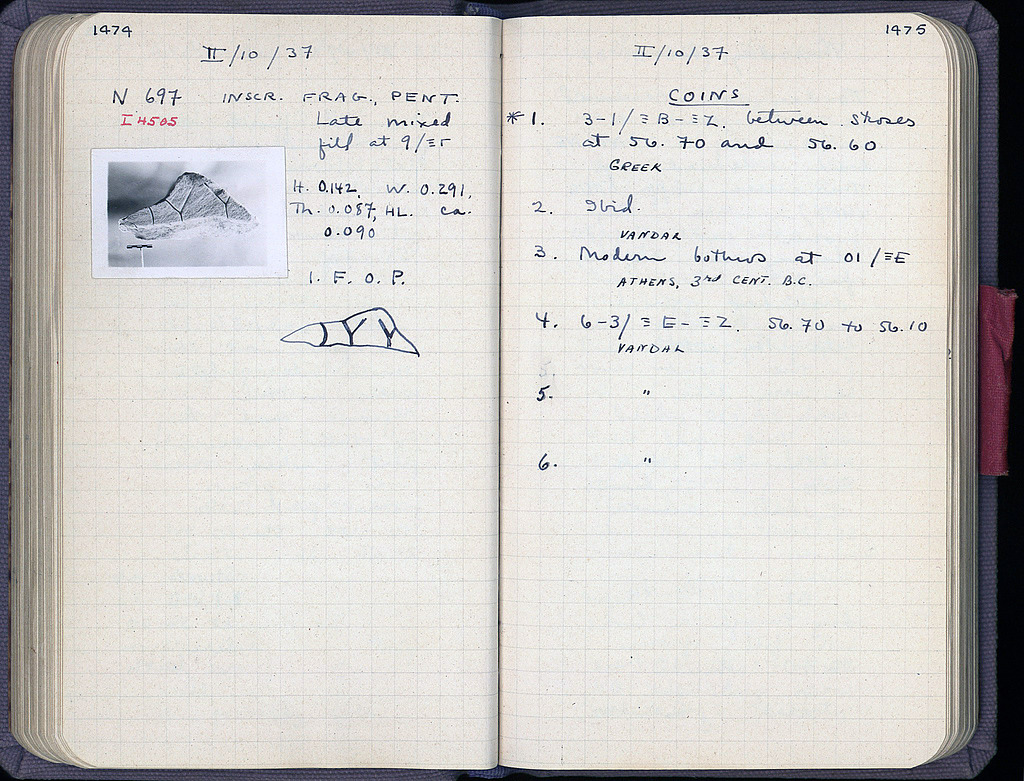 1474
II/10/37
N 697 INSCR. FRAG., PENT.
I 4505 Late mixed
fill at 9/ΞΓ
H. 0.142, W. 0.291,
Th. 0.087, HL. ca.
0.090
1. F. O. P.
1475
II/10/37
COINS
* 1. 3-1/Ξ B-ΞZ. between stoses
at 56.70 and 56.60
GREEK
2. Ibid.
VANDAL
3. Modern bothros at 01/ΞE
ATHENS, 3rd CENT. B.C.
4. 6-3/Ξ E-ΞZ. 56.70 to 56.10
VANDAL
5. "
6. "